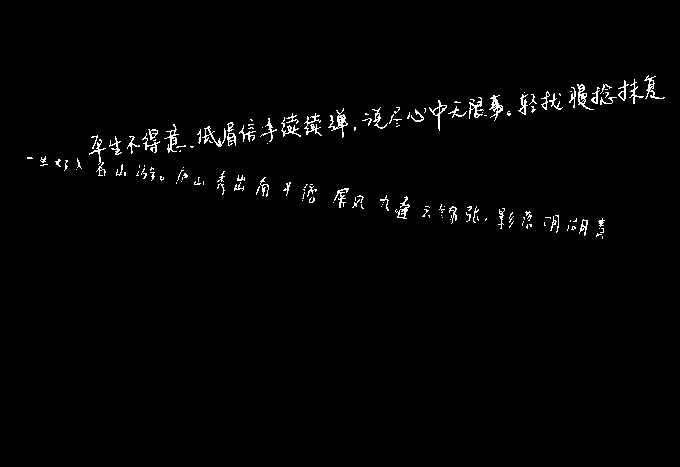 平生不得意。低眉信手续续弹,说尽心中无限事。轻找慢捻抹复
一生好入名山游。庐山秀出南斗傍 屏风九叠云锦张,影落明湖青